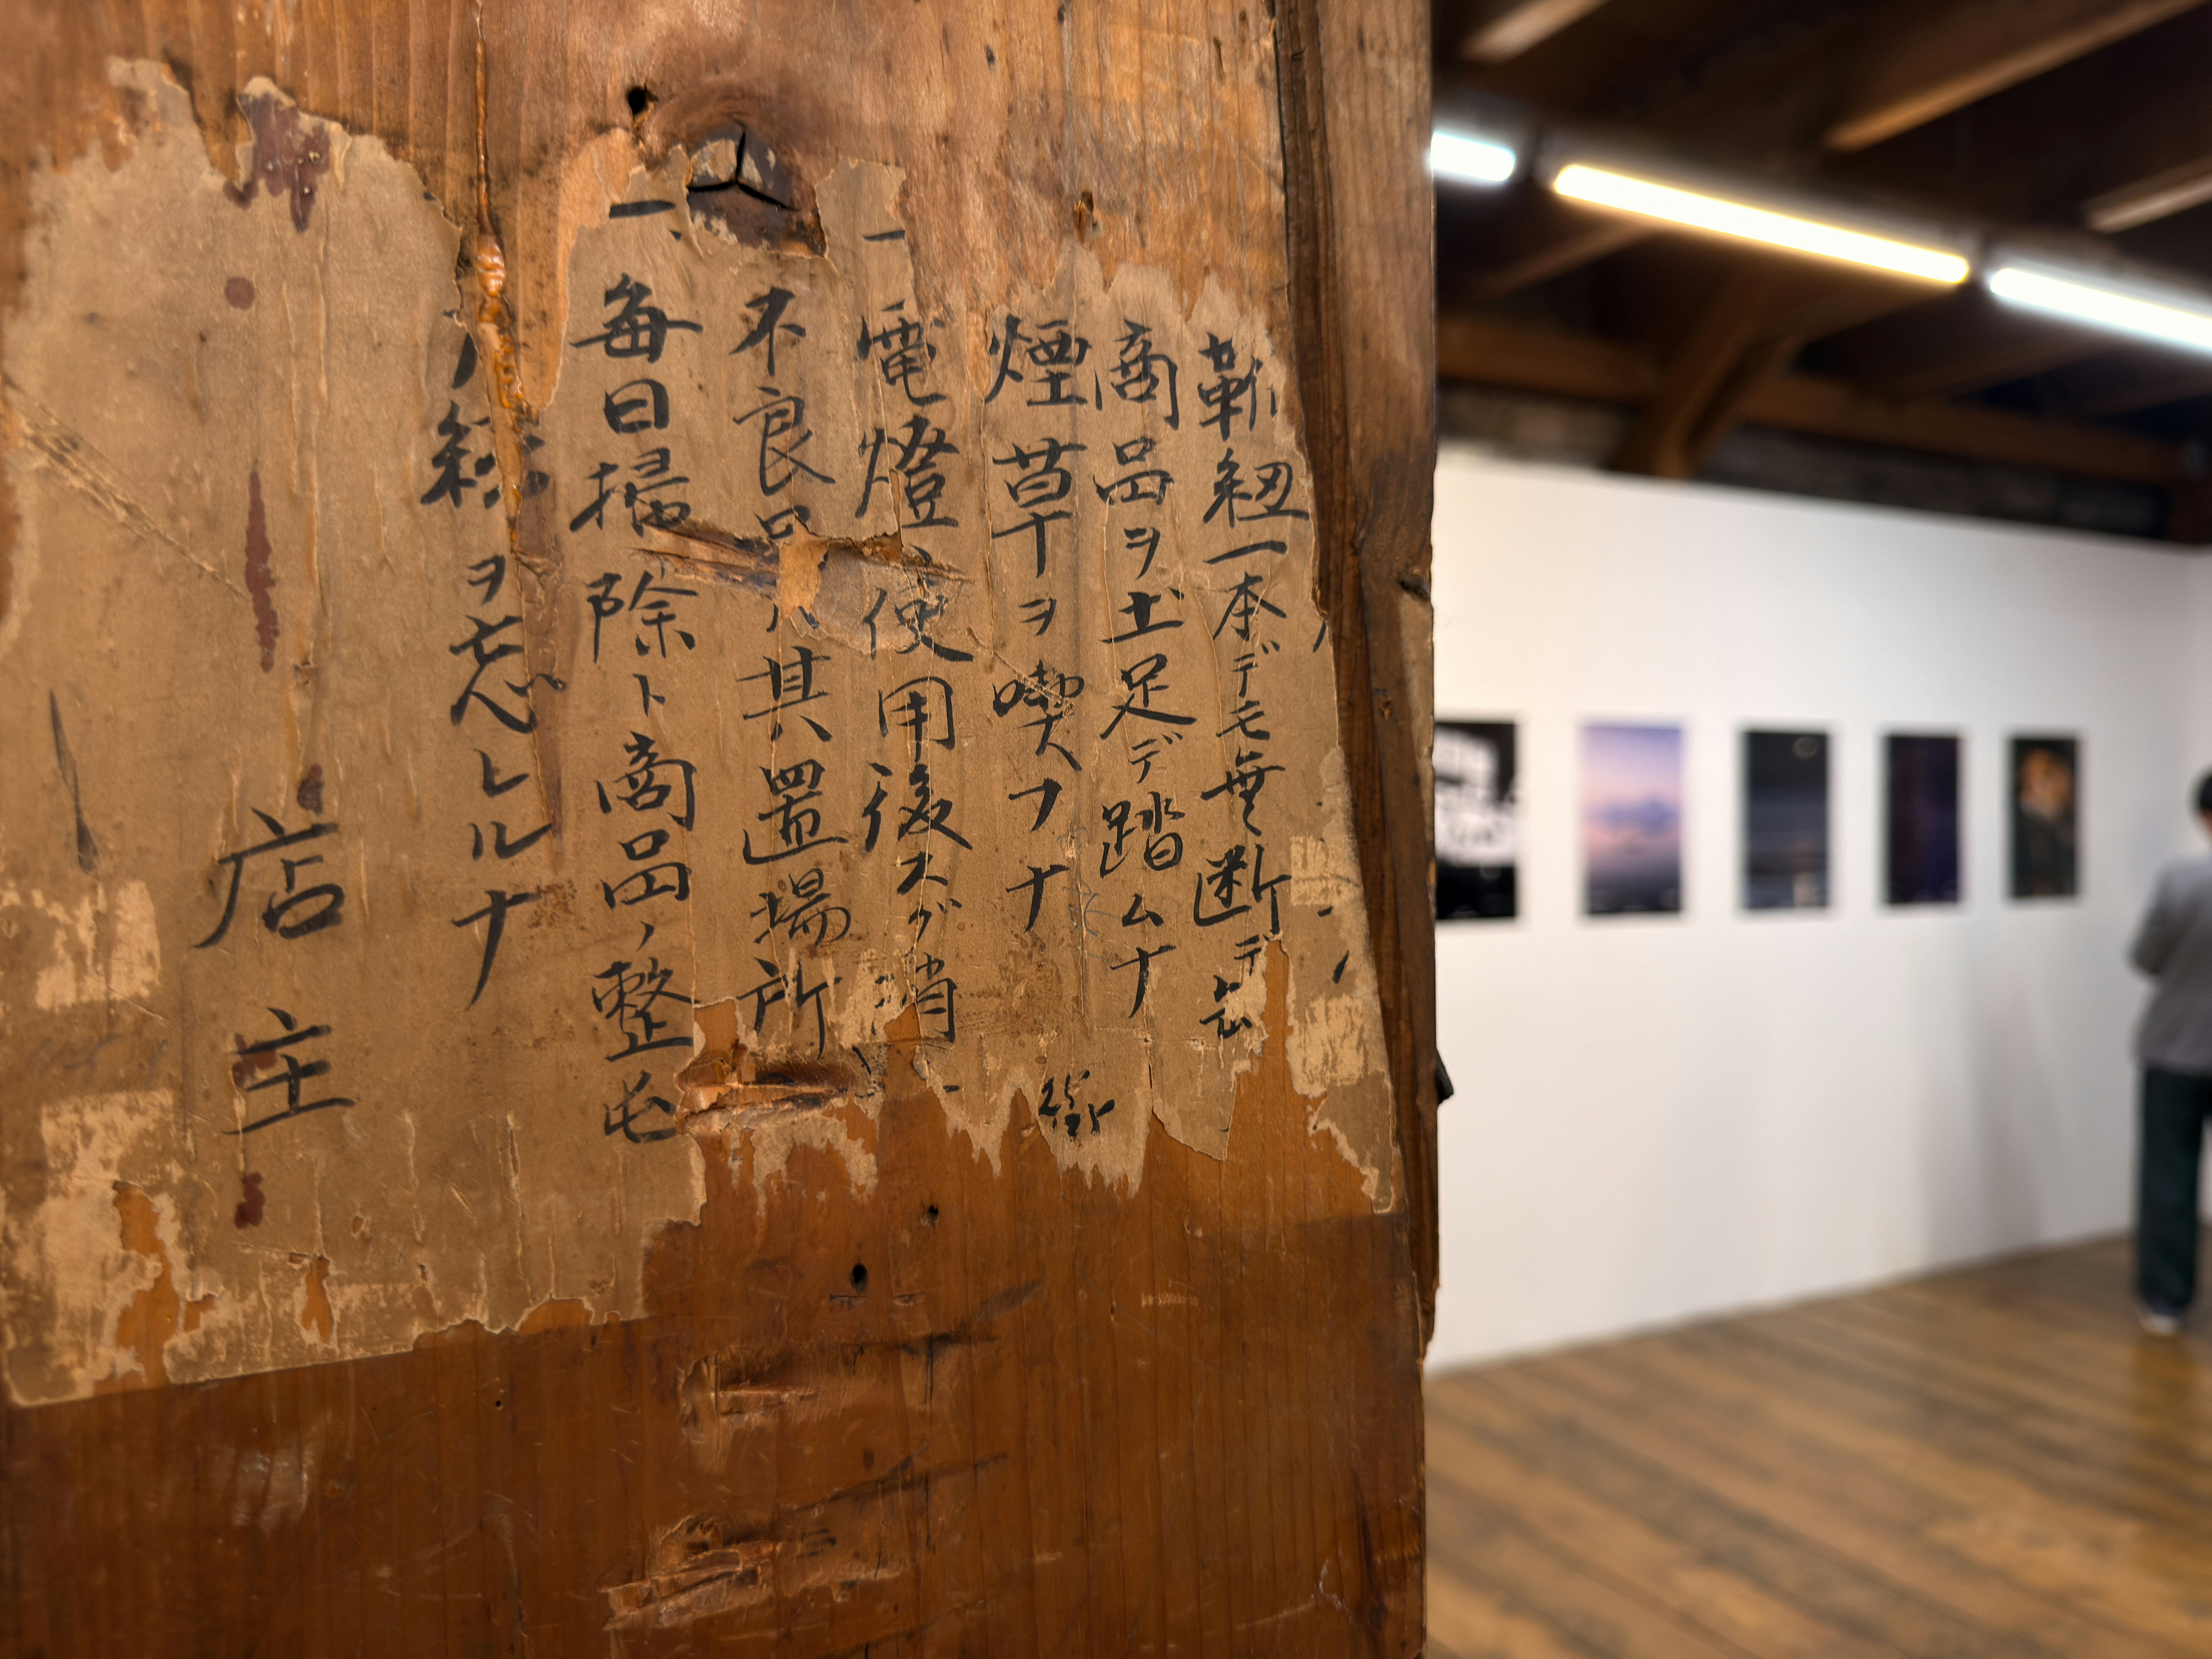 靴紐一本デモ無断デ
商品ヲ土足デ踏ムナ
煙草ヲ喫フナ
一電燈使用後スグ消
不良品ハ其置場所
一、毎日掃除ト商品ノ整屯
締ヲ忘レルナ
店主